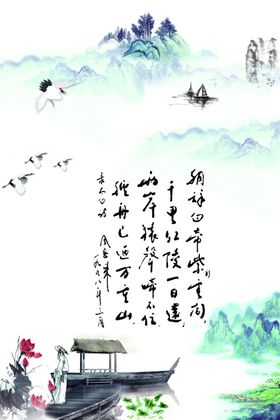 朝辞白帝彩云间，
千里江陵一日還，
两岸猿聲啼不住
轻舟已過万重山。
李太白诗